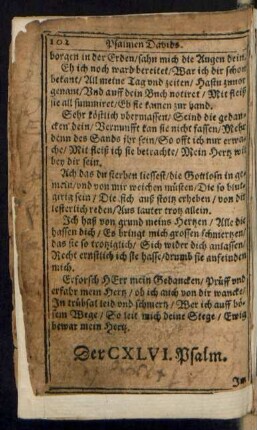 102 Psalmen Davids.
borgen in der Erden/sahn mich die Augen dein.
Eh ich noch ward bereitet/War ich dir schon
bekant/All meine Tag vnd zeiten/Hastu zuvor
genant/Vnd auff dein Buch notiret/Mit fleiß
sie all summiret/Eh sie kamen zur hand.
Sehr köstlich vbermassen/Seind die gedan-
cken dein/Vernunfft kan sie nicht fassen/Mehr
denn des Sands ihr sein/So offt ich nur erwa-
che/Mit fleiß ich sie betrachte/Mein Hertz wil
bey dir sein.
Ach das du sterben liessest/die Gottlosn in ge-
mein/und von mir weichen müsten/Die so blut-
girig sein/Die sich auß stoltz erheben/von dir
lesterlich reden/Aus lauter trotz allein.
Ich haß von grund meins Hertzen/Alle die
hassen dich/Es bringt mich grossen schmertzen/
das sie so trotziglich/Sich wider dich anlassen/
Recht ernstlich ich sie hasse/drumb sie anfeinden
mich.
Erforsch HErr mein Gedancken/Prüff vnd
erfahr mein Hertz/ob ich auch von dir wancke/
In trübsal leid vnd schmertz/Wer ich auff bö-
sem Wege/So leit mich deine Stege/Ewig
bewar mein Hertz.
Der CXLVI. Psalm.